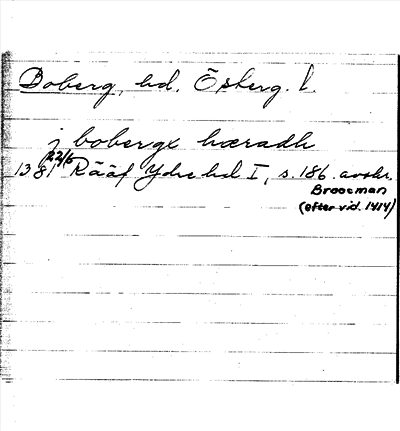 Boberg, hd. Östberg. l.
j bobergx hæradh
22/5
1381 Rääf Ydre hd I, s. 186. avskr.
Broocman
(efter vid. 1414)